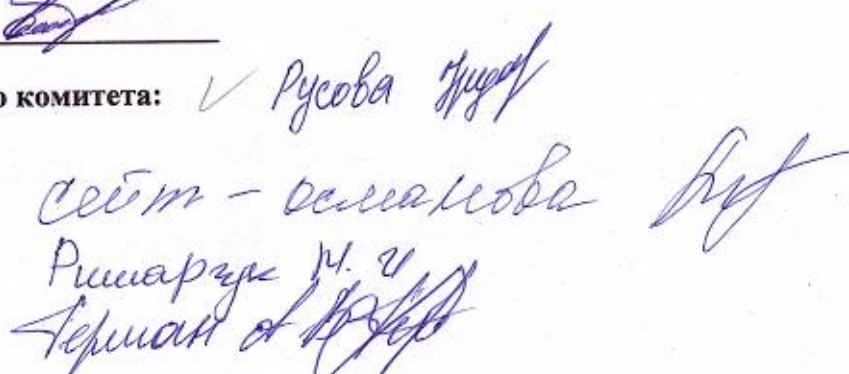 о комитета: Русова
сейт - османова
Ришарчук М. И
Герман А